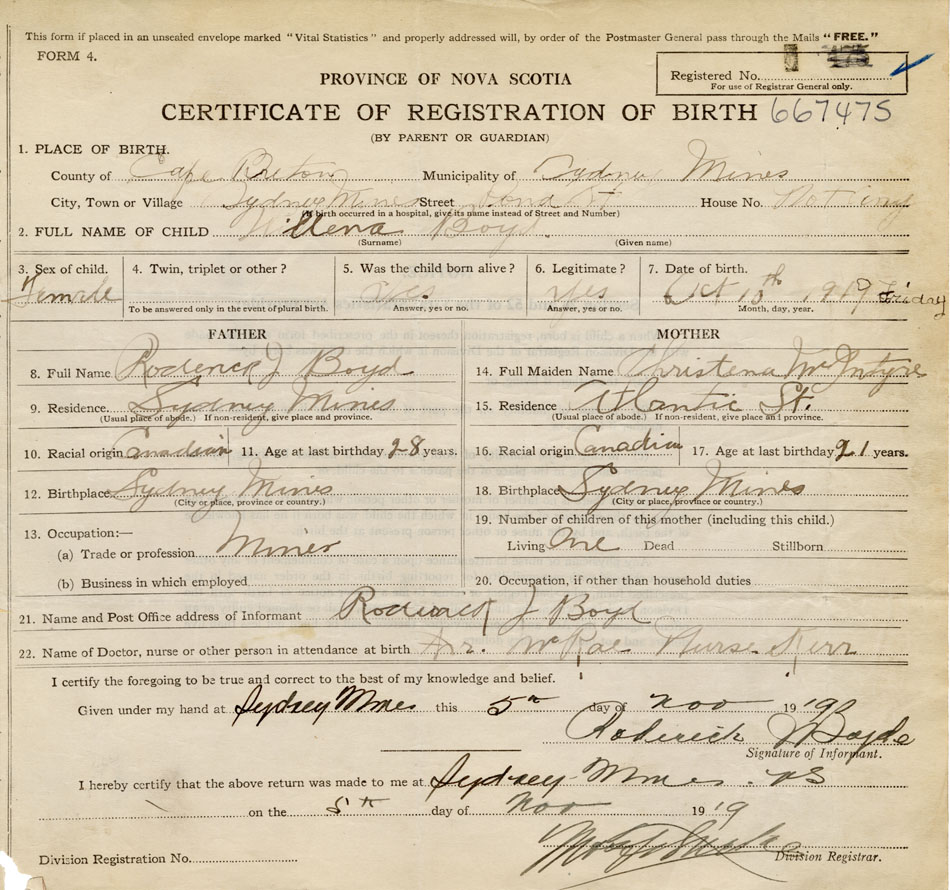 This form if placed in an unsealed envelope marked "Vital Statistics" and properly addressed will, by order of the Postmaster General pass through the Mails "FREE."
FORM 4.
Registered No.
For use of Registrar General only.
PROVINCE OF NOVA SCOTIA
CERTIFICATE OF REGISTRATION OF BIRTH 667475
(BY PARENT OR GUARDIAN)
1. PLACE OF BIRTH.
County of Cape Breton Municipality of Sydney Mines
City, Town or Village Sydney Mines Street Pond St House No. Not any
(If birth occurred in a hospital, give its name instead of Street and Number)
2. FULL NAME OF CHILD Willena Boyd
(Surname) (Given name)
3. Sex of child. 4. Twin, triplet or other? 5. Was the child born alive? 6. Legitimate? 7. Date of birth.
Female yes yes Oct 10th 1919 Friday
To be answered only in the event of plural birth. Answer, yes or no. Answer, yes or no. Month, day, year.
FATHER MOTHER
8. Full Name Roderick J Boyd 14. Full Maiden Name Christena McIntyre
9. Residence. Sydney Mines 15. Residence Atlantic St.
(Usual place of abode.) If non-resident, give place and province. (Usual place of abode.) If non-resident, give place and province.
10. Racial origin Canadian 11. Age at last birthday 28 years. 16. Racial origin Canadian 17. Age at last birthday 21 years.
12. Birthplace Sydney Mines 18. Birthplace Sydney Mines
(City or place, province or country.) (City or place, province or country.)
13. Occupation:— 19. Number of children of this mother (including this child.)
(a) Trade or profession Miner Living One Dead Stillborn
(b) Business in which employed 20. Occupation, if other than household duties
21. Name and Post Office address of Informant Roderick J Boyd
22. Name of Doctor, nurse or other person in attendance at birth Dr. McRae Nurse Kerr
I certify the foregoing to be true and correct to the best of my knowledge and belief.
Given under my hand at Sydney Mines this 5th day of Nov 1919
Roderick J Boyde
Signature of Informant.
I hereby certify that the above return was made to me at Sydney Mines. NS
on the 5th day of Nov 1919
Division Registration No. Division Registrar.